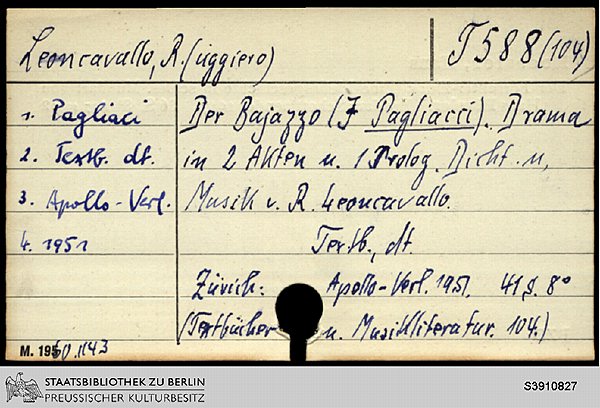 Leoncavallo, R.(uggiero)
T 588 (104)
1. Pagliaci
2. Textb. dt.
3. Apollo-Verl.
4. 1951
Der Bajazzo (I Pagliacci). Drama
in 2 Akten u. 1 Prolog. Dicht. u.
Musik v. R. Leoncavallo.
Textb., dt.
Zürich: Apollo-Verl. 1951. 41 S. 8°
(Textbücher u. Musikliteratur. 104.)
M. 195
STAATSBIBLIOTHEK ZU BERLIN
PREUSSISCHER KULTURBESITZ
S3910827